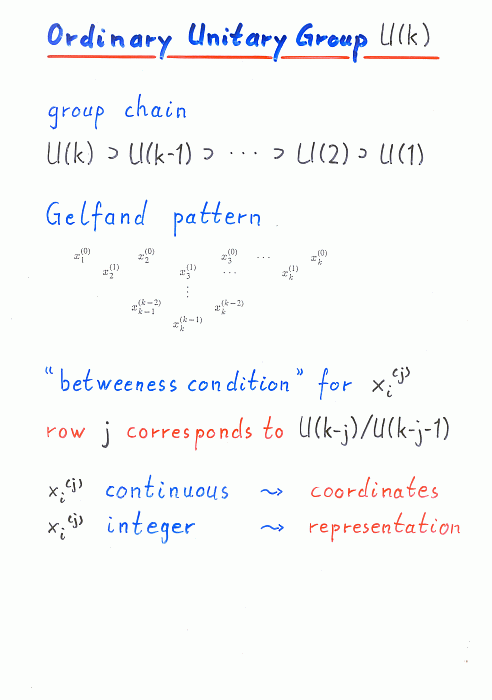 Ordinary Unitary Group U(k)
group chain
U(k) ⊃ U(k-1) ⊃ ··· ⊃ U(2) ⊃ U(1)
Gelfand pattern
x_1^{(0)} x_2^{(0)} x_3^{(0)} ··· x_k^{(0)}
x_2^{(1)} x_3^{(1)} ··· x_k^{(1)}
⋮
x_{k-1}^{(k-2)} x_k^{(k-2)}
x_k^{(k-1)}
"betweeness condition" for x_i^{(j)}
row j corresponds to U(k-j)/U(k-j-1)
x_i^{(j)} continuous ⇝ coordinates
x_i^{(j)} integer ⇝ representation